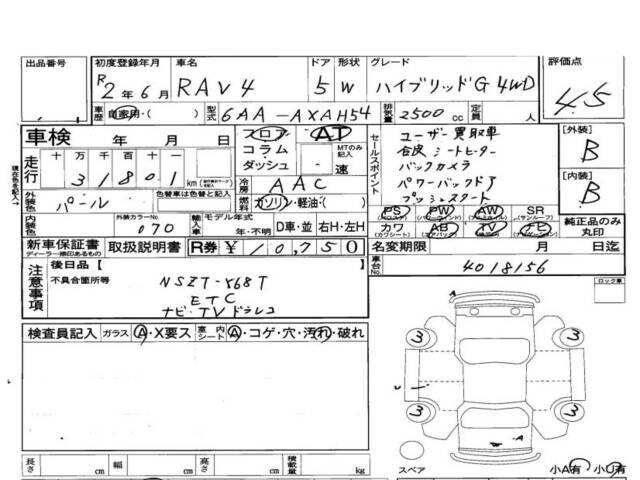 出品番号 初度登録年月 車名 ドア 形状 グレード 評価点
R2年6月 RAV4 5 W ハイブリッドG 4WD 4.5
車歴 自家用・( ) 型式 6AA-AXAH54 排気量 2500 cc 定員 人
車検 年 月 日 フロア AT
コラム MTのみ記入
ダッシュ 速
走行 十万千百十一 31801 km
冷房 AAC
外装色 パール 燃料 ガソリン・軽油・( )
内装色 外装カラーNo. 070 輸入車 モデル年式 年・不明 D車・並 右H・左H
現在色を記入 色替車は元色( )
セールスポイント
ユーザー買取車
合皮シートヒーター
バックカメラ
パワーバックドア
プッシュスタート
[外装] B
[内装] B
PS (パワステ) PW (パワーウインド) AW (アルミホイール) SR (サンルーフ)
カワ (カワシート) AB (エアバック) TV ナビ
純正品のみ丸印
新車保証書 取扱説明書 R券 ¥10,750 名変期限 月 日迄
ディーラー捺印有るもの
車台No. 4018156
注意事項 後日品[ ]
不具合箇所等
NSZT-Y68T
ETC
ナビ・TV ドラレコ
ロック車
検査員記入 ガラス A・X要ス 室内シート A・コゲ・穴・汚れ・破れ
A
3 3
U
3 3
A
スペア 小A有 小U有
長さ cm 幅 cm 高さ cm 積載量 kg